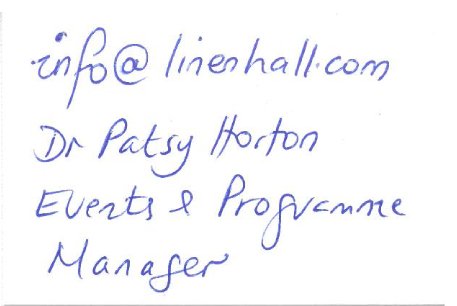 info@linenhall.com
Dr Patsy Horton
Events & Programme
Manager